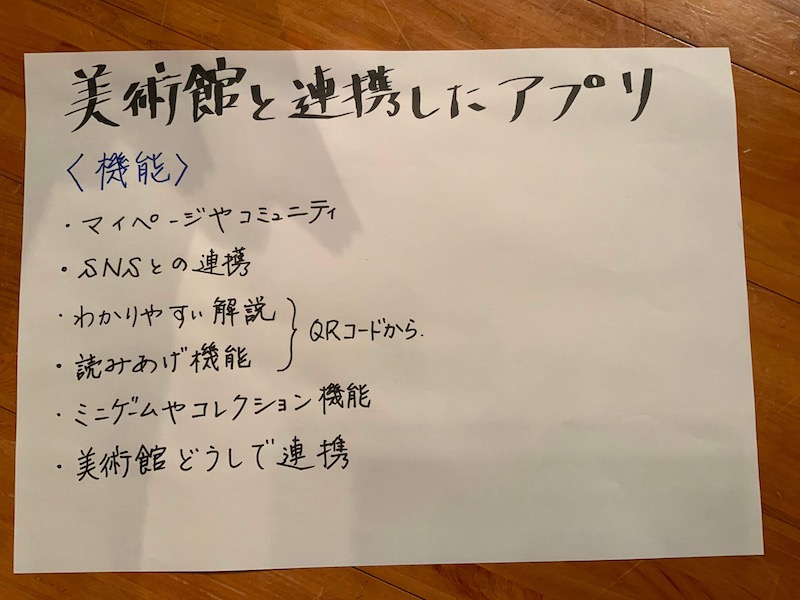 美術館と連携したアプリ
〈機能〉
・マイページやコミュニティ
・SNSとの連携
・わかりやすい解説
・読みあげ機能
QRコードから.
・ミニゲームやコレクション機能
・美術館どうしで連携